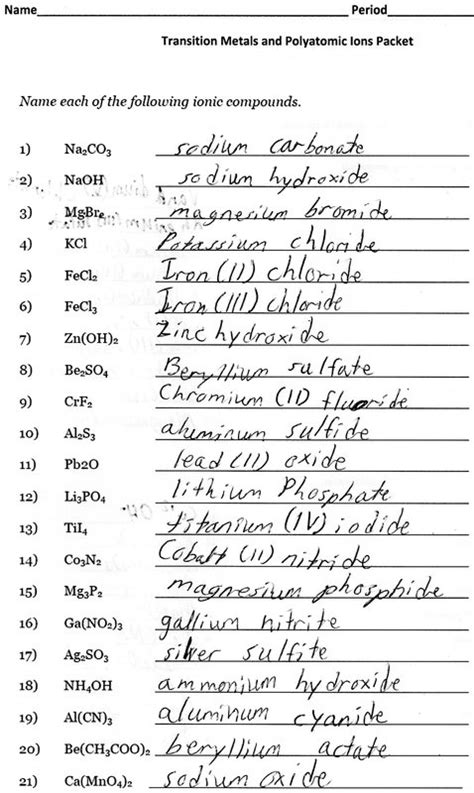 Name Period
Transition Metals and Polyatomic Ions Packet
Name each of the following ionic compounds.
1) Na₂CO₃ sodium carbonate
2) NaOH sodium hydroxide
3) MgBr₂ magnesium bromide
4) KCl Potassium chloride
5) FeCl₂ Iron (II) chloride
6) FeCl₃ Iron (III) chloride
7) Zn(OH)₂ Zinc hydroxide
8) Be₂SO₄ Beryllium sulfate
9) CrF₂ Chromium (II) fluoride
10) Al₂S₃ aluminum sulfide
11) Pb2O lead (II) oxide
12) Li₃PO₄ lithium Phosphate
13) TiI₄ titanium (IV) iodide
14) Co₃N₂ Cobalt (II) nitride
15) Mg₃P₂ magnesium phosphide
16) Ga(NO₂)₃ gallium nitrite
17) Ag₂SO₃ silver sulfite
18) NH₄OH ammonium hydroxide
19) Al(CN)₃ aluminum cyanide
20) Be(CH₃COO)₂ beryllium actate
21) Ca(MnO₄)₂ sodium oxide